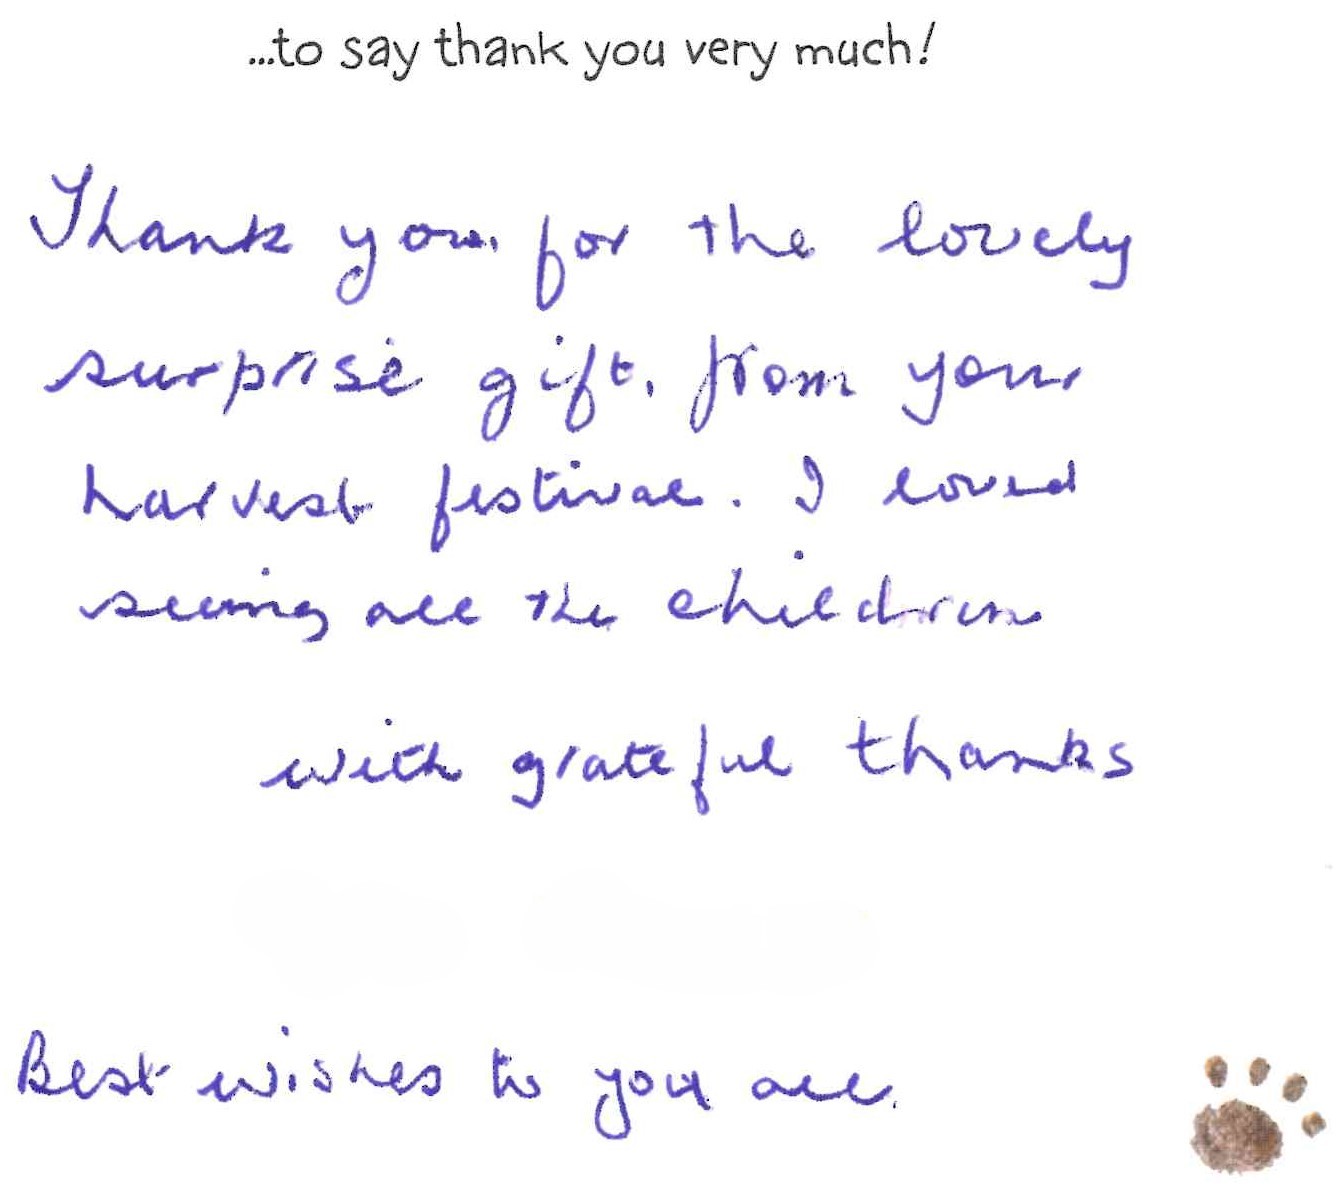 ...to say thank you very much!
Thank you for the lovely
surprise gift, from your
harvest festival. I loved
seeing all the children
with grateful thanks
Best wishes to you all.